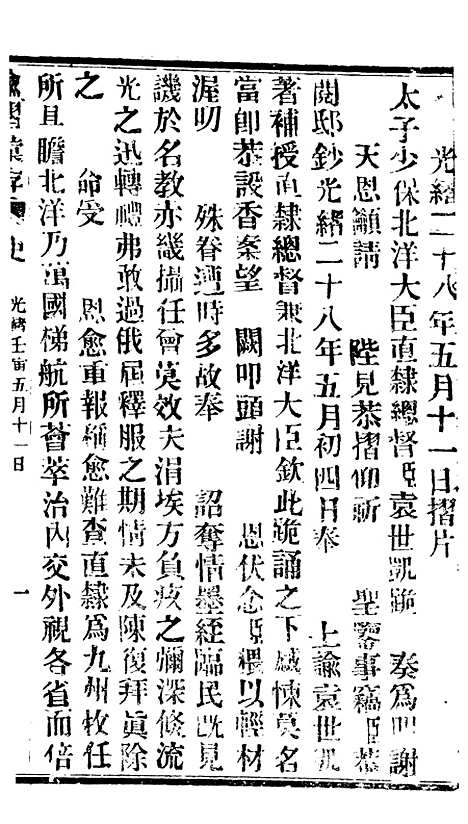 光緒二十八年五月十一日摺片
太子少保北洋大臣直隸總督臣袁世凱跪 奏爲叩謝
天恩籲請 陛見恭摺仰祈 聖鑒事竊臣恭
閱邸鈔光緒二十八年五月初四日奉 上諭袁世凱
著補授直隸總督兼北洋大臣欽此跪誦之下感悚莫名
當即恭設香案望 闕叩頭謝 恩伏念臣猥以輕材
渥叨 殊眷遭時多故奉 詔奪情墨絰臨民旣見
譏於名教亦幾攝任曾莫效夫涓埃方負疚之彌深倏流
光之迅轉禮弗敢過俄屆釋服之期情未及陳復拜眞除
之 命受 恩愈重報稱愈難查直隸爲九州牧任
所且瞻北洋乃萬國梯航所薈萃治內交外視各省而倍
諭摺彙存 史 光緒壬寅五月十一日 一